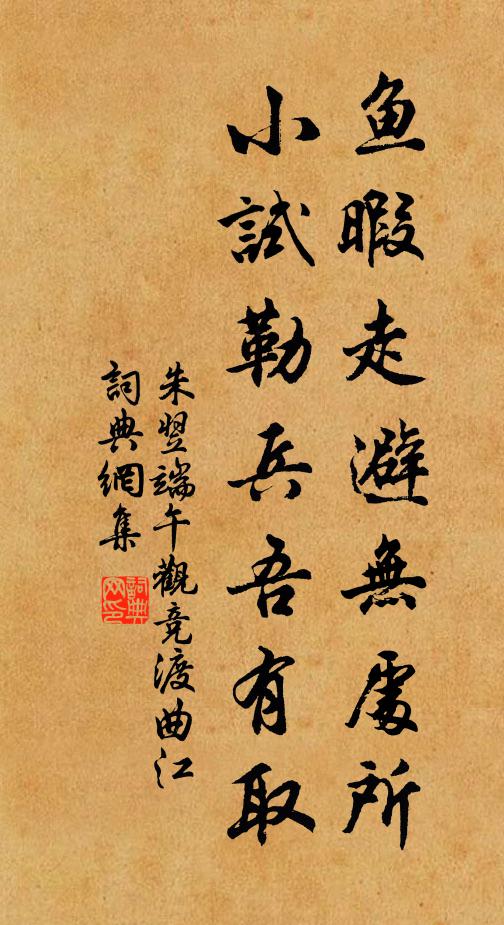 鱼暇走避無處所
小試勒兵吾有取
朱翌端午觀竞渡曲江
詞典網集
詞典网印